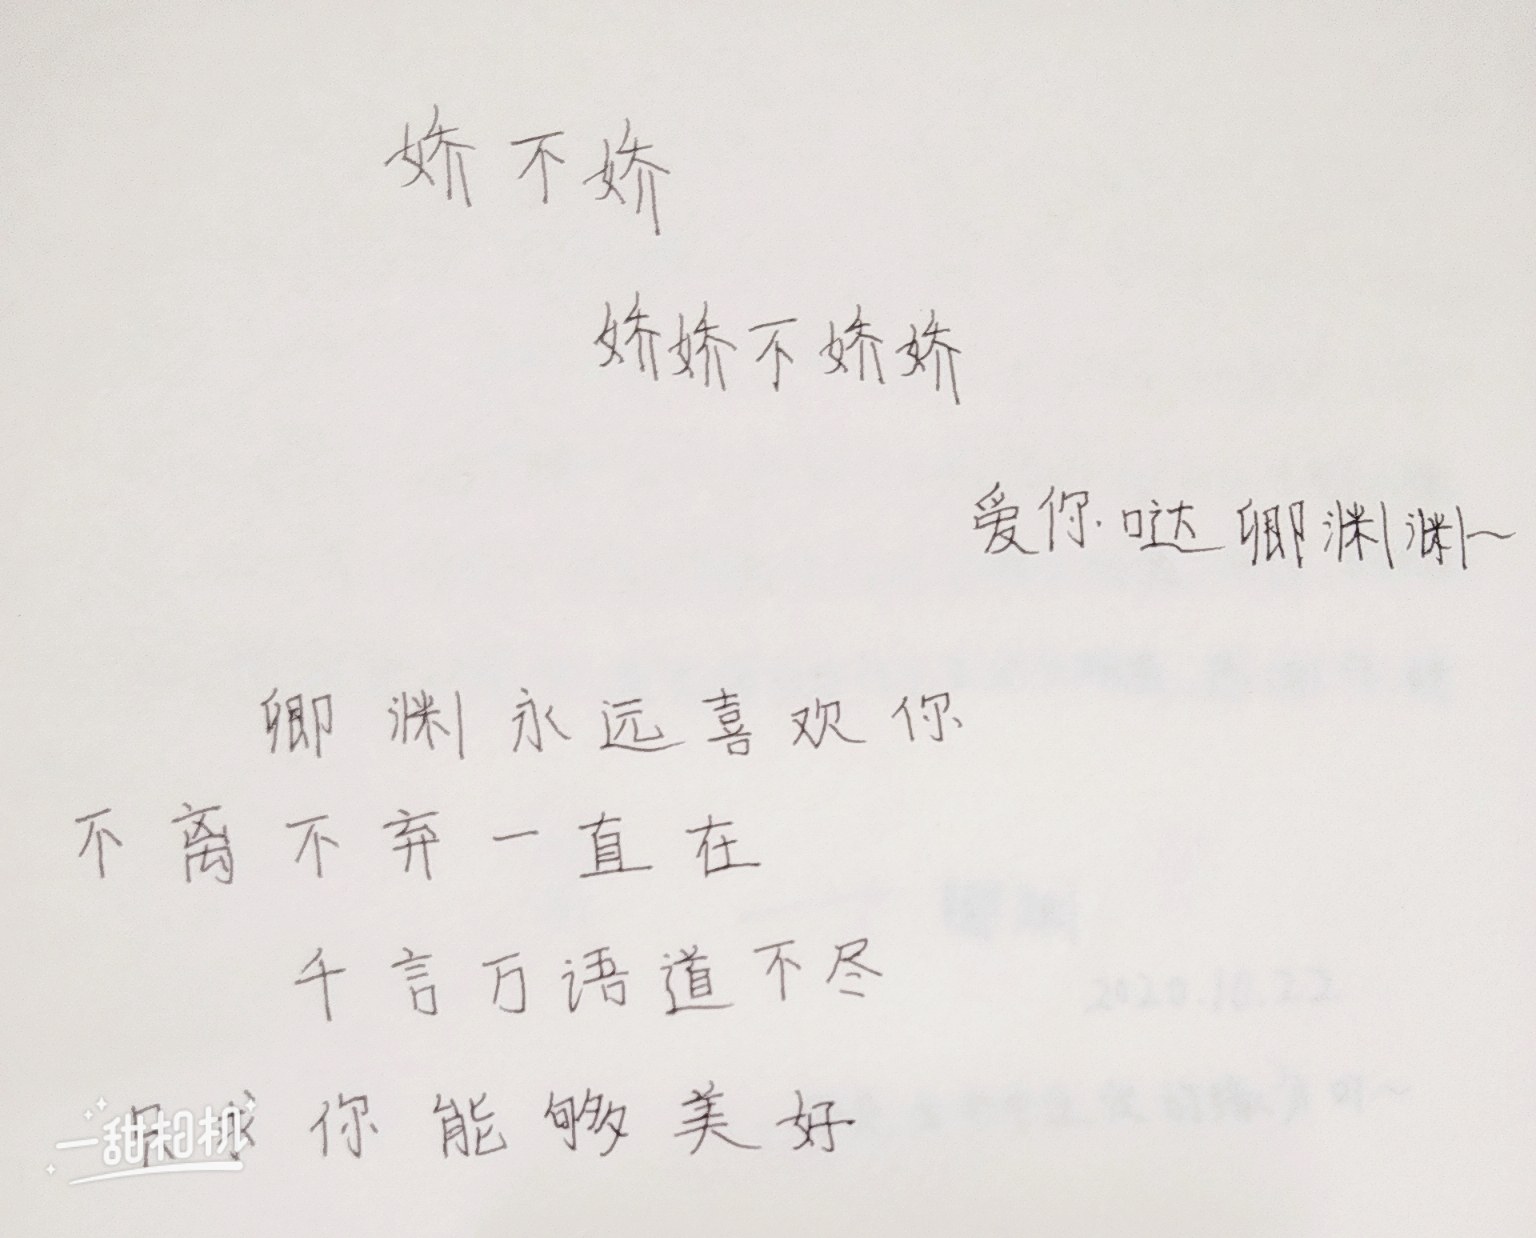 娇不娇
娇娇不娇娇
爱你哒卿渊渊~
卿渊永远喜欢你
不离不弃一直在
千言万语道不尽
只求你能够美好
一甜相机
2020.10.22